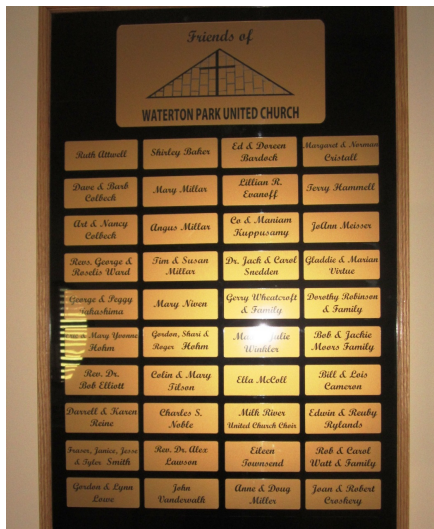 Friends of
WATERTON PARK UNITED CHURCH
Ruth Attwell
Shirley Baker
Ed & Doreen
Bardock
Margaret & Norman
Cristall
Dave & Barb
Colbeck
Mary Millar
Lillian R.
Evanoff
Terry Hammell
Art & Nancy
Colbeck
Angus Millar
Co & Maniam
Kuppusamy
JoAnn Meisser
Revs. George &
Roselis Ward
Tim & Susan
Millar
Dr. Jack & Carol
Snedden
Gladdie & Marian
Virtue
George & Peggy
Mary Niven
Gerry Wheatcroft
& Family
Dorothy Robinson
& Family
Mary Yvonne
Hohm
Gordon, Shari &
Roger Hohm
Winkler
Bob & Jackie
Moors Family
Rev. Dr.
Bob Elliott
Colin & Mary
Tilson
Ella McColl
Bill & Lois
Cameron
Darrell & Karen
Reine
Charles S.
Noble
Milk River
United Church Choir
Edwin & Reuby
Rylands
Fraser, Janice, Jesse
& Tyler Smith
Rev. Dr. Alex
Lawson
Eileen
Townsend
Rob & Carol
Watt & Family
Gordon & Lynn
Lowe
John
Vandervalk
Anne & Doug
Miller
Joan & Robert
Croskery